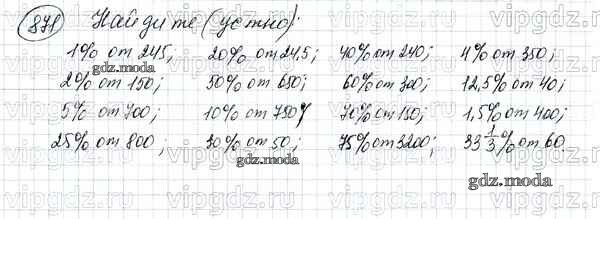 871 Найдите (устно):
1% от 245; 20% от 245; 40% от 240; 4% от 350;
2% от 150; 50% от 630; 60% от 300; 12,5% от 40;
5% от 700; 10% от 750; 70% от 150; 1,5% от 400;
25% от 800; 30% от 50; 75% от 3200; 33 1/3 % от 60.
gdz.moda
gdz.moda
gdz.moda
gdz.moda
vipgdz.ru